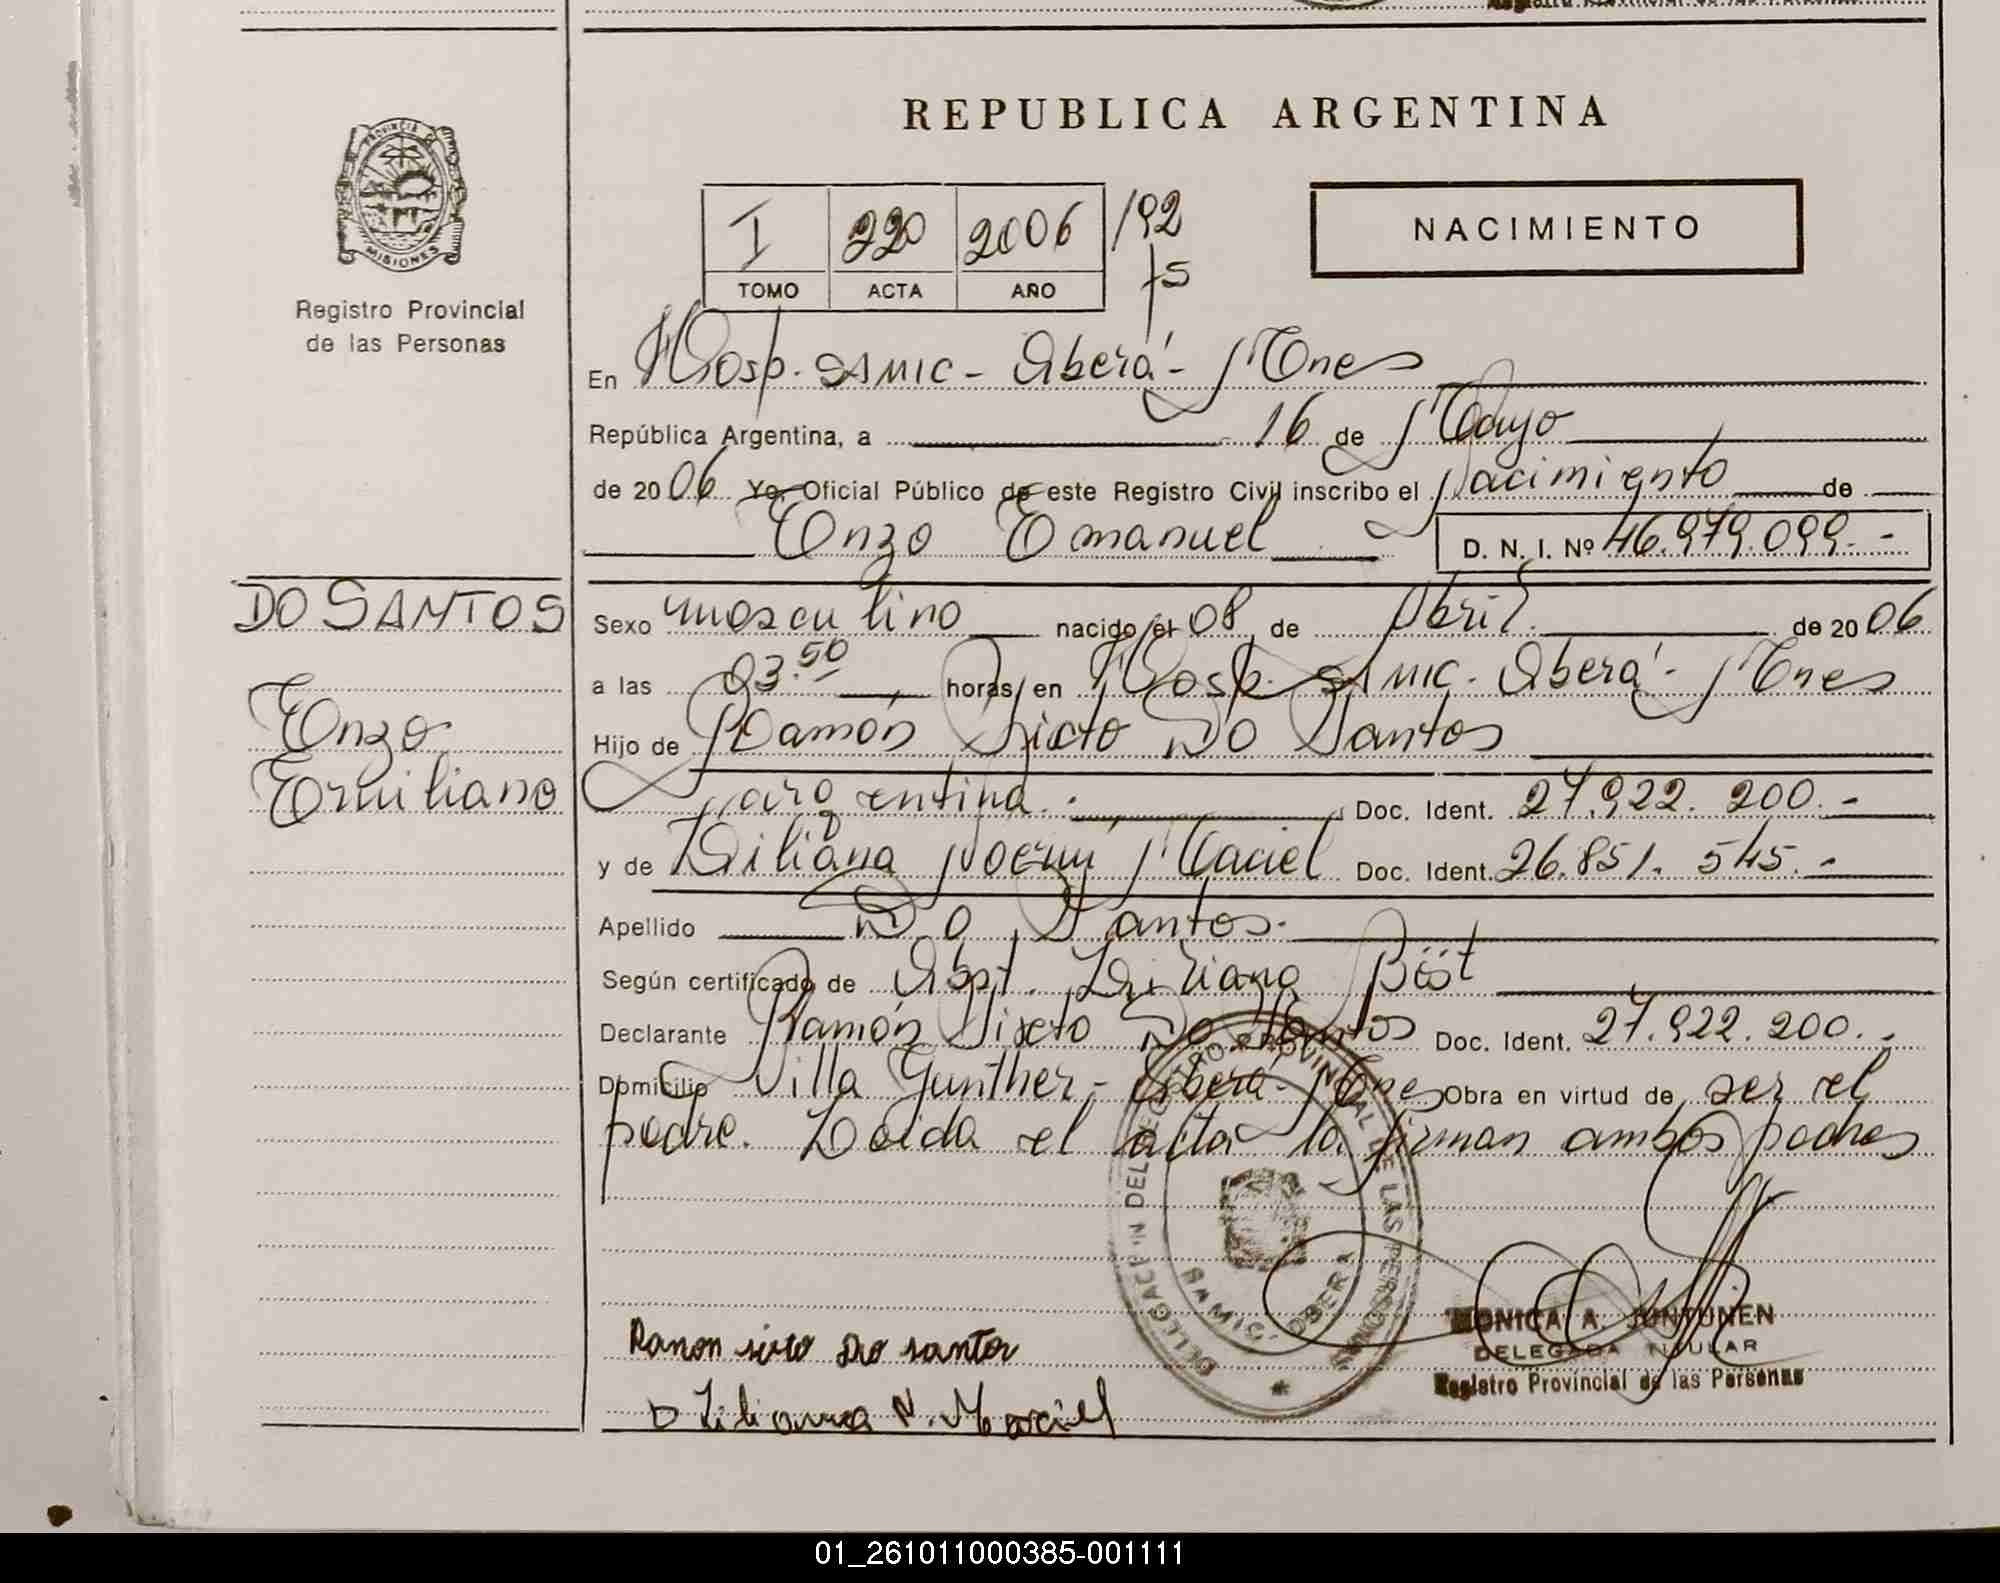 REPUBLICA ARGENTINA
PROVINCIA DE
MISIONES
Registro Provincial
de las Personas
I 220 2006 /92
TOMO ACTA AÑO fs
NACIMIENTO
En Hosp. SAMIC - Oberá - Mnes
República Argentina, a 16 de Mayo
de 2006 Yo, Oficial Público de este Registro Civil inscribo el Nacimiento de
Enzo Emanuel D. N. I. Nº 46.979.099.-
DO SANTOS
Enzo
Emiliano
Sexo masculino nacido el 08 de Abril de 2006
a las 03.50 horas, en Hosp. SAMIC. Oberá - Mnes
Hijo de Ramón Sixto Do Santos
argentina. Doc. Ident. 27.922.200.-
y de Liliana Noemí Maciel Doc. Ident. 26.851.545.-
Apellido Do Santos.
Según certificado de Obst. Liliana
Declarante Ramón Sixto Do Santos Doc. Ident. 27.922.200.-
Domicilio Villa Gunther - Oberá - Mnes Obra en virtud de ser el
padre. Leida el acta la firman ambos padres
DELEGACION DEL REGISTRO PROVINCIAL DE LAS PERSONAS
OBERA
MONICA A. JUNTUNEN
DELEGADA TITULAR
Registro Provincial de las Personas
Ramon sixto Do santos
Liliana N. Maciel
01_261011000385-001111